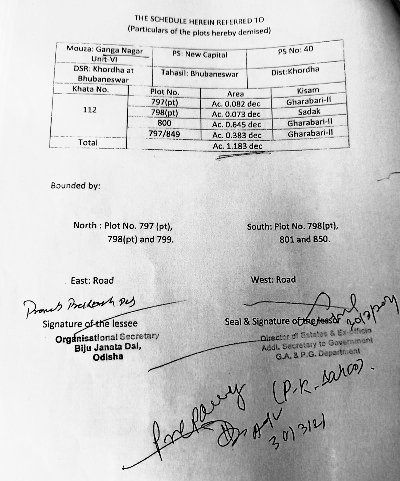 THE SCHEDULE HEREIN REFERRED TO
(Particulars of the plots hereby demised)
Mouza: Ganga Nagar Unit VI PS: New Capital PS No: 40
DSR: Khordha at Bhubaneswar Tahasil: Bhubaneswar Dist:Khordha
Khata No. Plot No. Area Kisam
112 797(pt) Ac. 0.082 dec Gharabari-II
798(pt) Ac. 0.073 dec Sadak
800 Ac. 0.645 dec Gharabari-II
797/849 Ac. 0.383 dec Gharabari-II
Total Ac. 1.183 dec
Bounded by:
North : Plot No. 797 (pt), South: Plot No. 798(pt),
798(pt) and 799. 801 and 850.
East: Road West: Road
Signature of the lessee Seal & Signature of the lessor
Organisational Secretary Director of Estates & Ex-officio
Biju Janata Dal, Addl. Secretary to Government
Odisha G.A. & P.G. Department
(P.K. Sahoo)
Adv
30/3/21